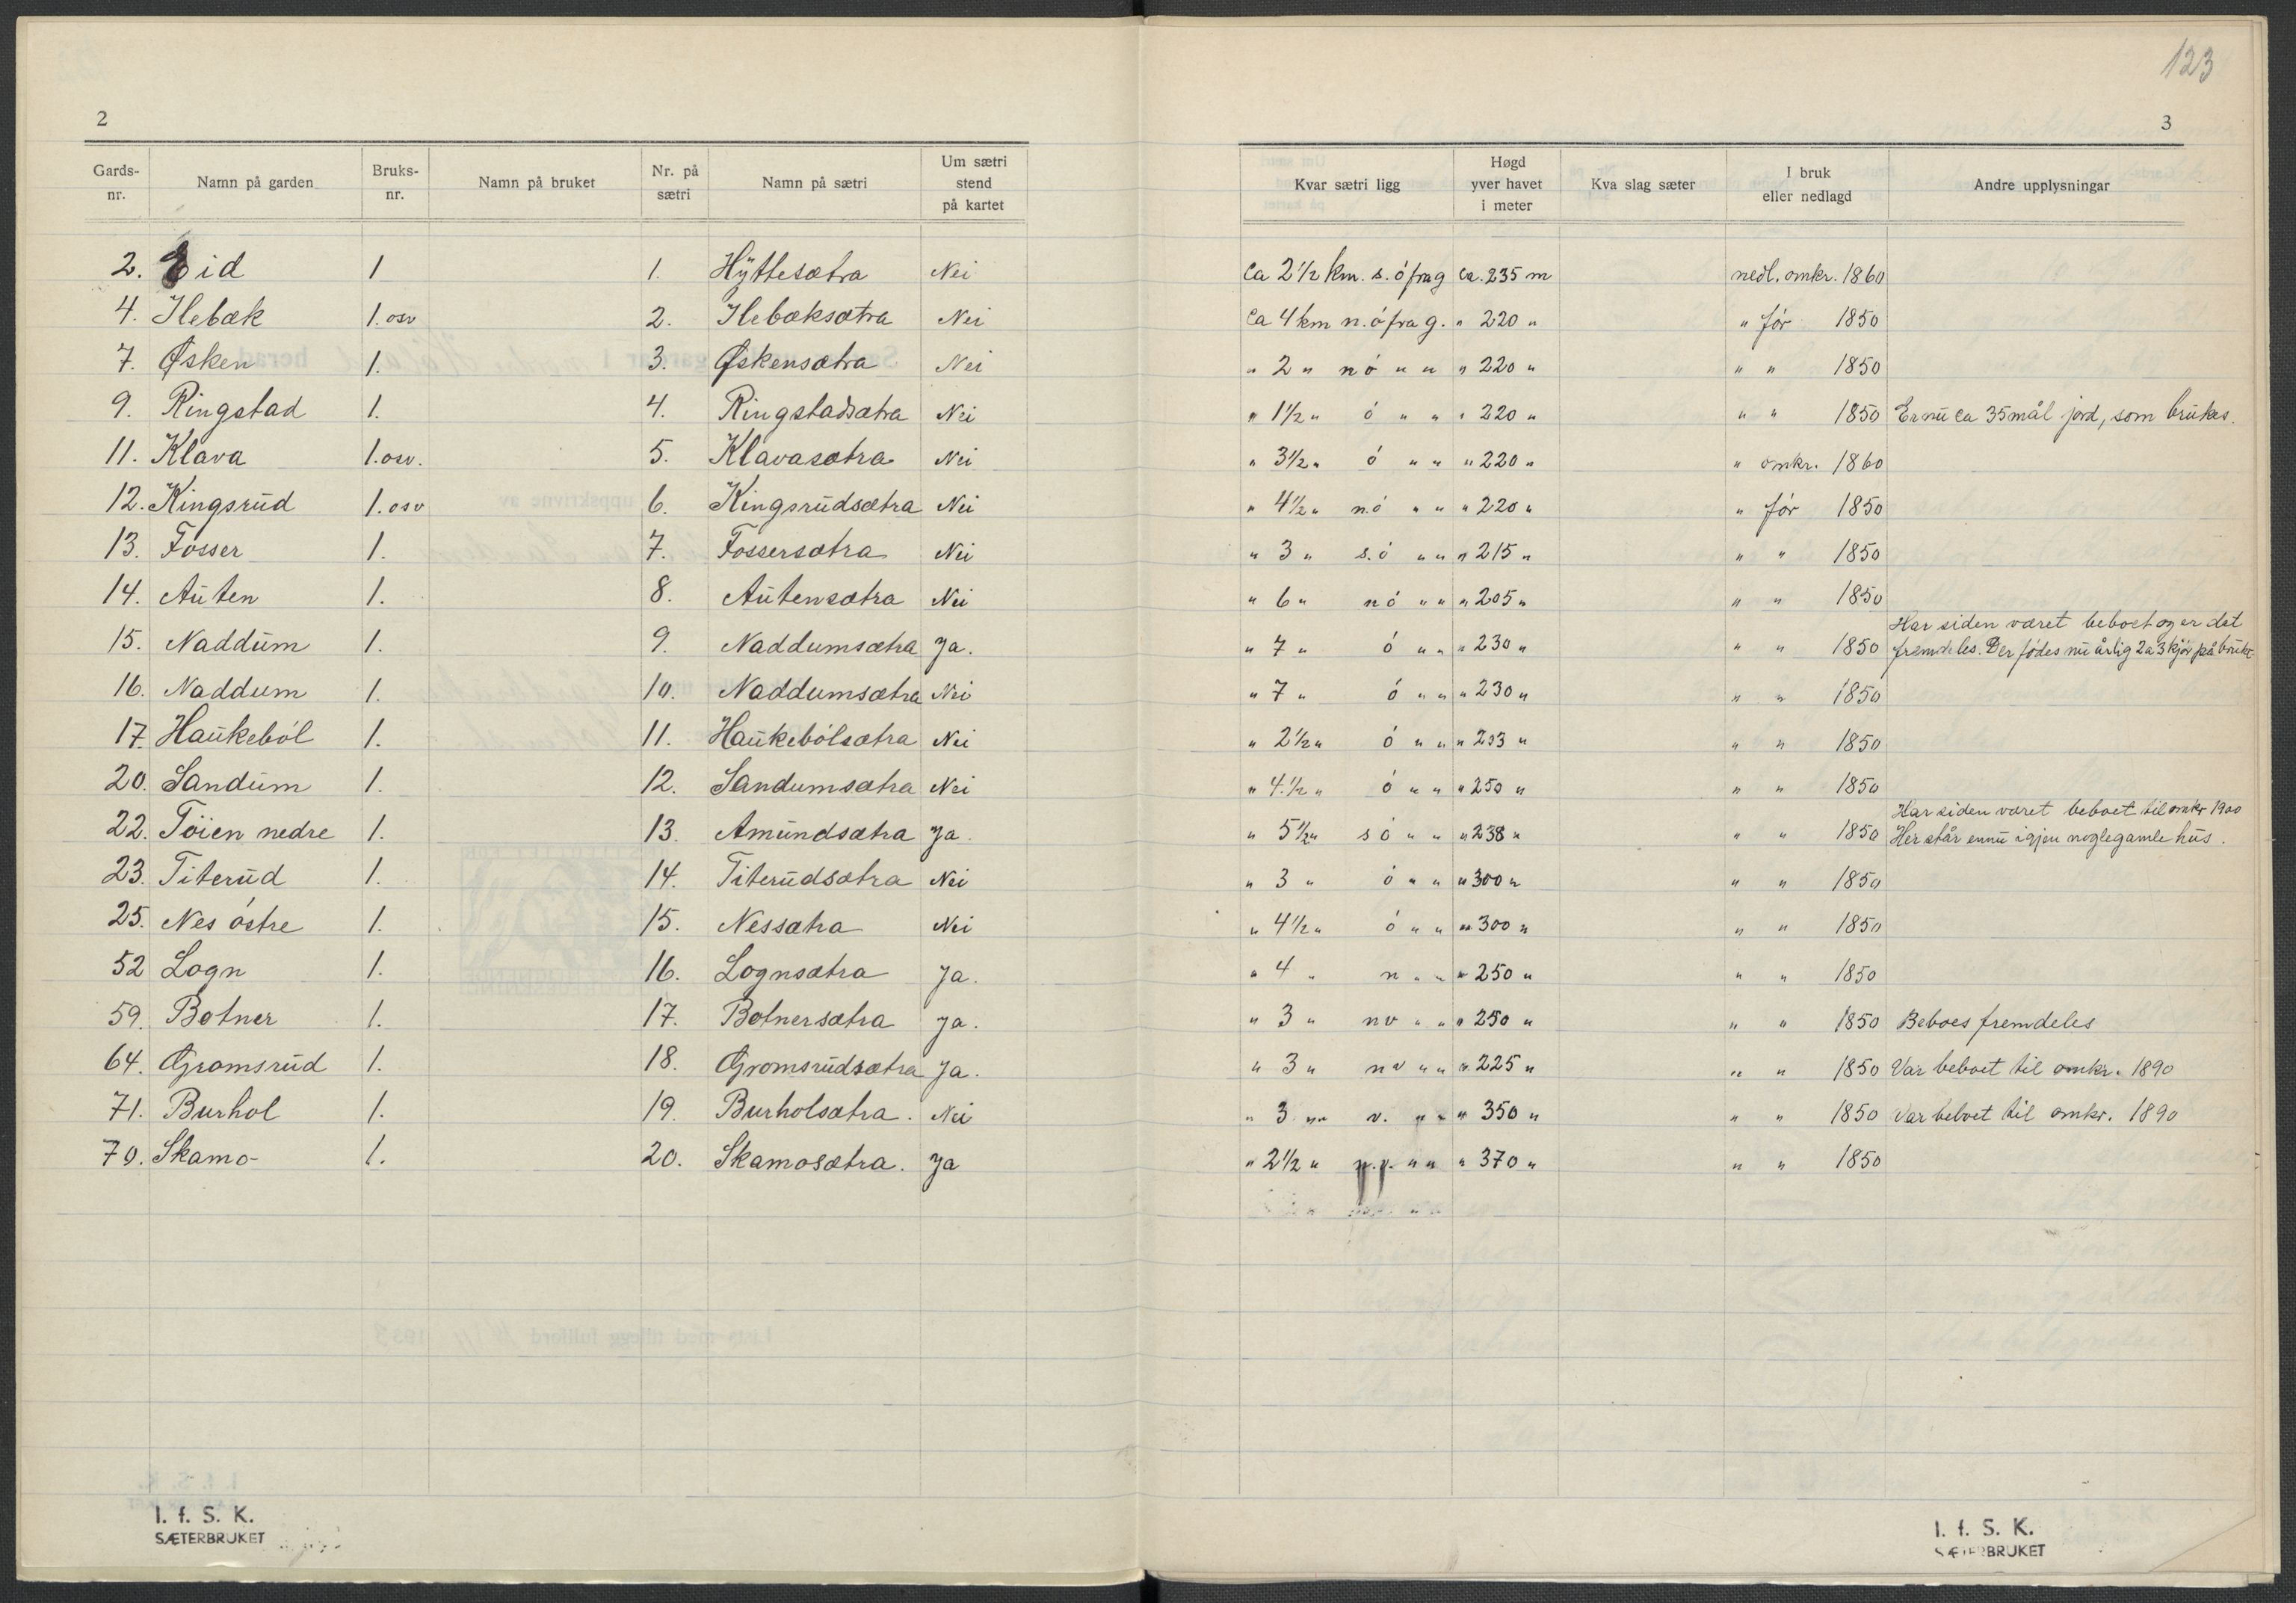 123
2
3
Gards-nr. Namn på garden Bruks-nr. Namn på bruket Nr. på sætri Namn på sætri Um sætri stend på kartet Kvar sætri ligg Høgd yver havet i meter Kva slag sæter I bruk eller nedlagd Andre upplysningar
2. Eid 1 1. Hyttesætra Nei Ca 2 1/2 km. s. ó fra g ca. 235 m nedl. omkr. 1860
4. Ilebæk 1. osv 2. Ilebæksætra Nei Ca 4 km n. ó fra g. " 220 " " før 1850
7. Øsken 1. 3. Øskensætra Nei " 2 " nó " " " 220 " " " 1850
9. Ringstad 1. 4. Ringstadsætra Nei " 1 1/2 " ó " " " 220 " " " 1850 Er nu ca 35 mål jord, som brukes.
11. Klava 1. osv. 5. Klavasætra Nei " 3 1/2 " ó " " " 220 " " omkr. 1860
12. Kingsrud 1. osv 6. Kingsrudsætra Nei " 4 1/2 " n.ó " " " 220 " " før 1850
13. Fosser 1. 7. Fossersætra Nei " 3 " s.ó " " " 215 " " " 1850
14. Auten 1. 8. Autensætra Nei " 6 " nó " " " 205 " " " 1850
Har siden været beboet og er det
15. Naddum 1. 9. Naddumsætra Ja. " 7 " ó " " " 230 " " " 1850 fremdeles. Der fødes nu årlig 2 a 3 kjør på bruket
16. Naddum 1. 10. Naddumsætra Nei " 7 " ó " " " 230 " " " 1850
17. Haukeból 1. 11. Haukebólsætra Nei " 2 1/2 " ó " " " 233 " " " 1850
20. Sandum 1. 12. Sandumsætra Nei " 4 1/2 " ó " " " 250 " " " 1850
Har siden været beboet til omkr 1900
22. Töien nedre 1. 13. Amundsætra Ja. " 5 1/2 " s ó " " " 238 " " " 1850 Her står ennu igjen nogle gamle hus.
23. Titerud 1. 14. Titerudsætra Nei " 3 " ó " " " 300 " " " 1850
25. Nes óstre 1. 15. Nessætra Nei " 4 1/2 " ó " " " 300 " " " 1850
52 Logn 1. 16. Lognsætra Ja. " 4 " n " " " 250 " " " 1850
59. Botner 1. 17. Botnersætra Ja. " 3 " nv " " " 250 " " " 1850 Beboes fremdeles
64. Gromsrud 1. 18. Gromsrudsætra Ja. " 3 " nv " " " 225 " " " 1850 Var beboet til omkr. 1890
71. Burhol 1. 19. Burholsætra. Nei " 3 " v. " " " 350 " " " 1850 Var beboet til omkr. 1890
79. Skamo 1. 20. Skamosætra. Ja " 2 1/2 " " " " 370 " " " 1850
I. f. S. K.
SÆTERBRUKET
I. f. S. K.
SÆTERBRUKET